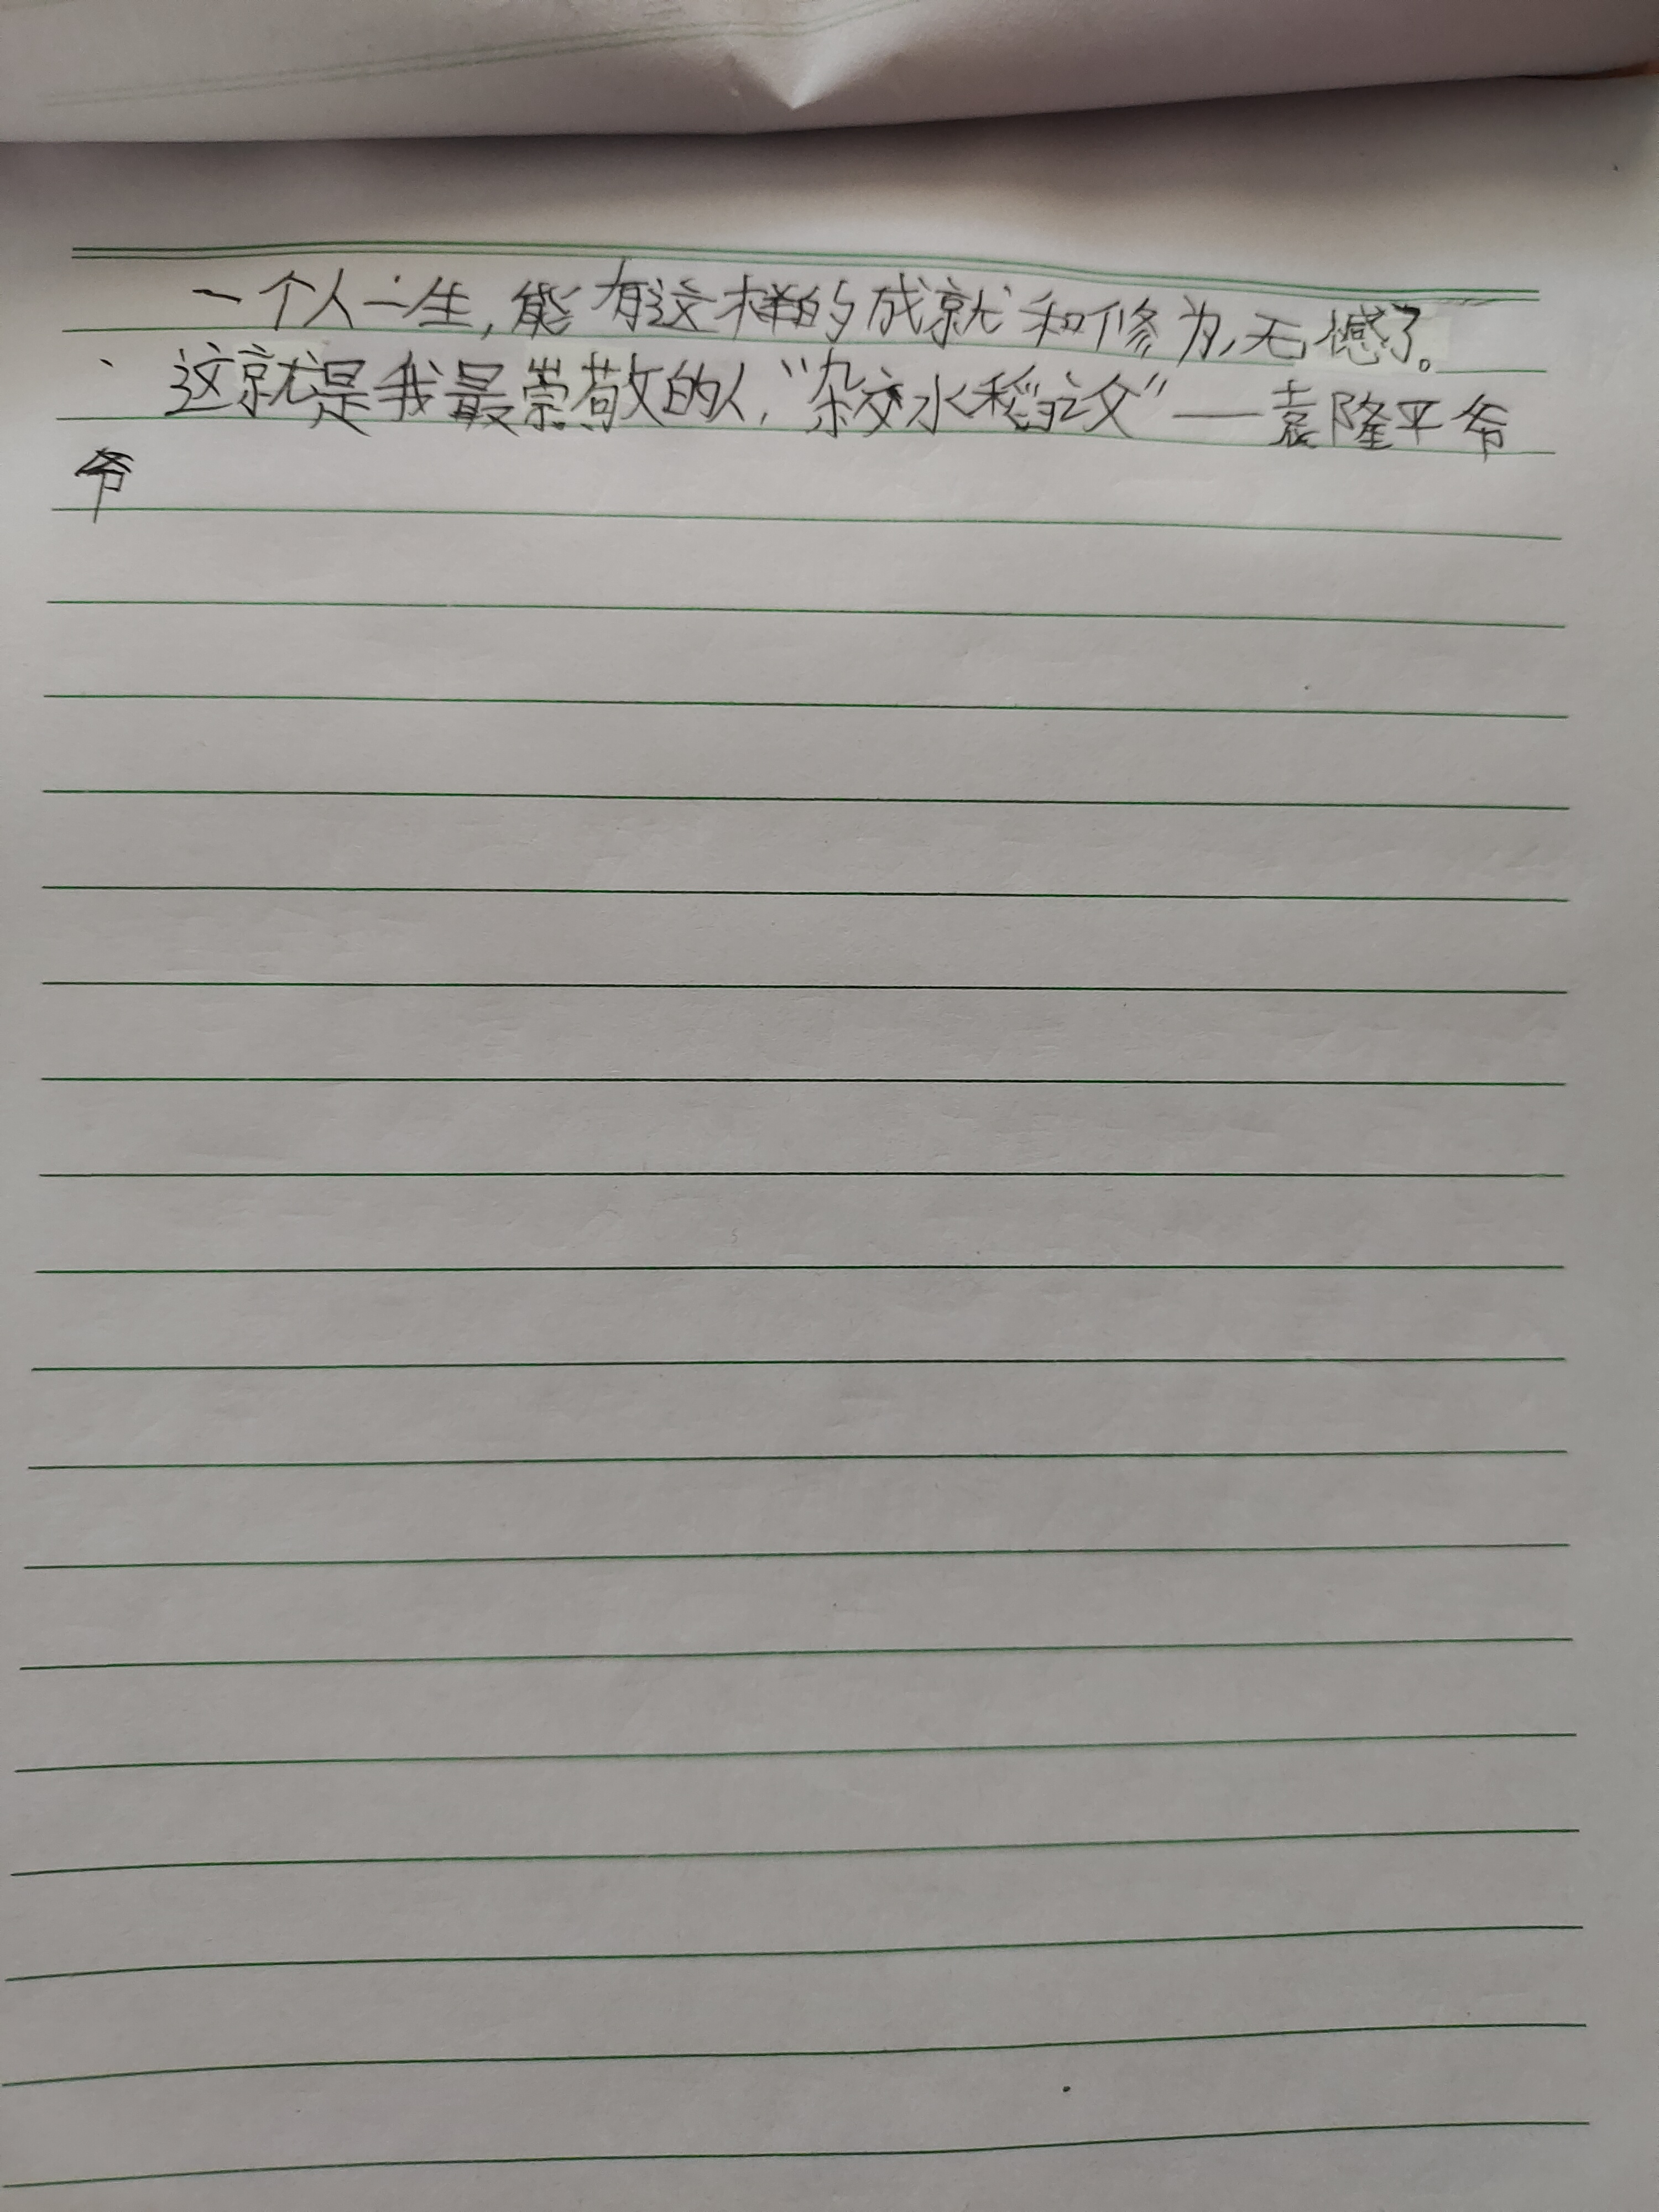 一个人一生,能有这样的成就和修为,无憾了。
这就是我最崇敬的人,“杂交水稻之父”——袁隆平爷
爷